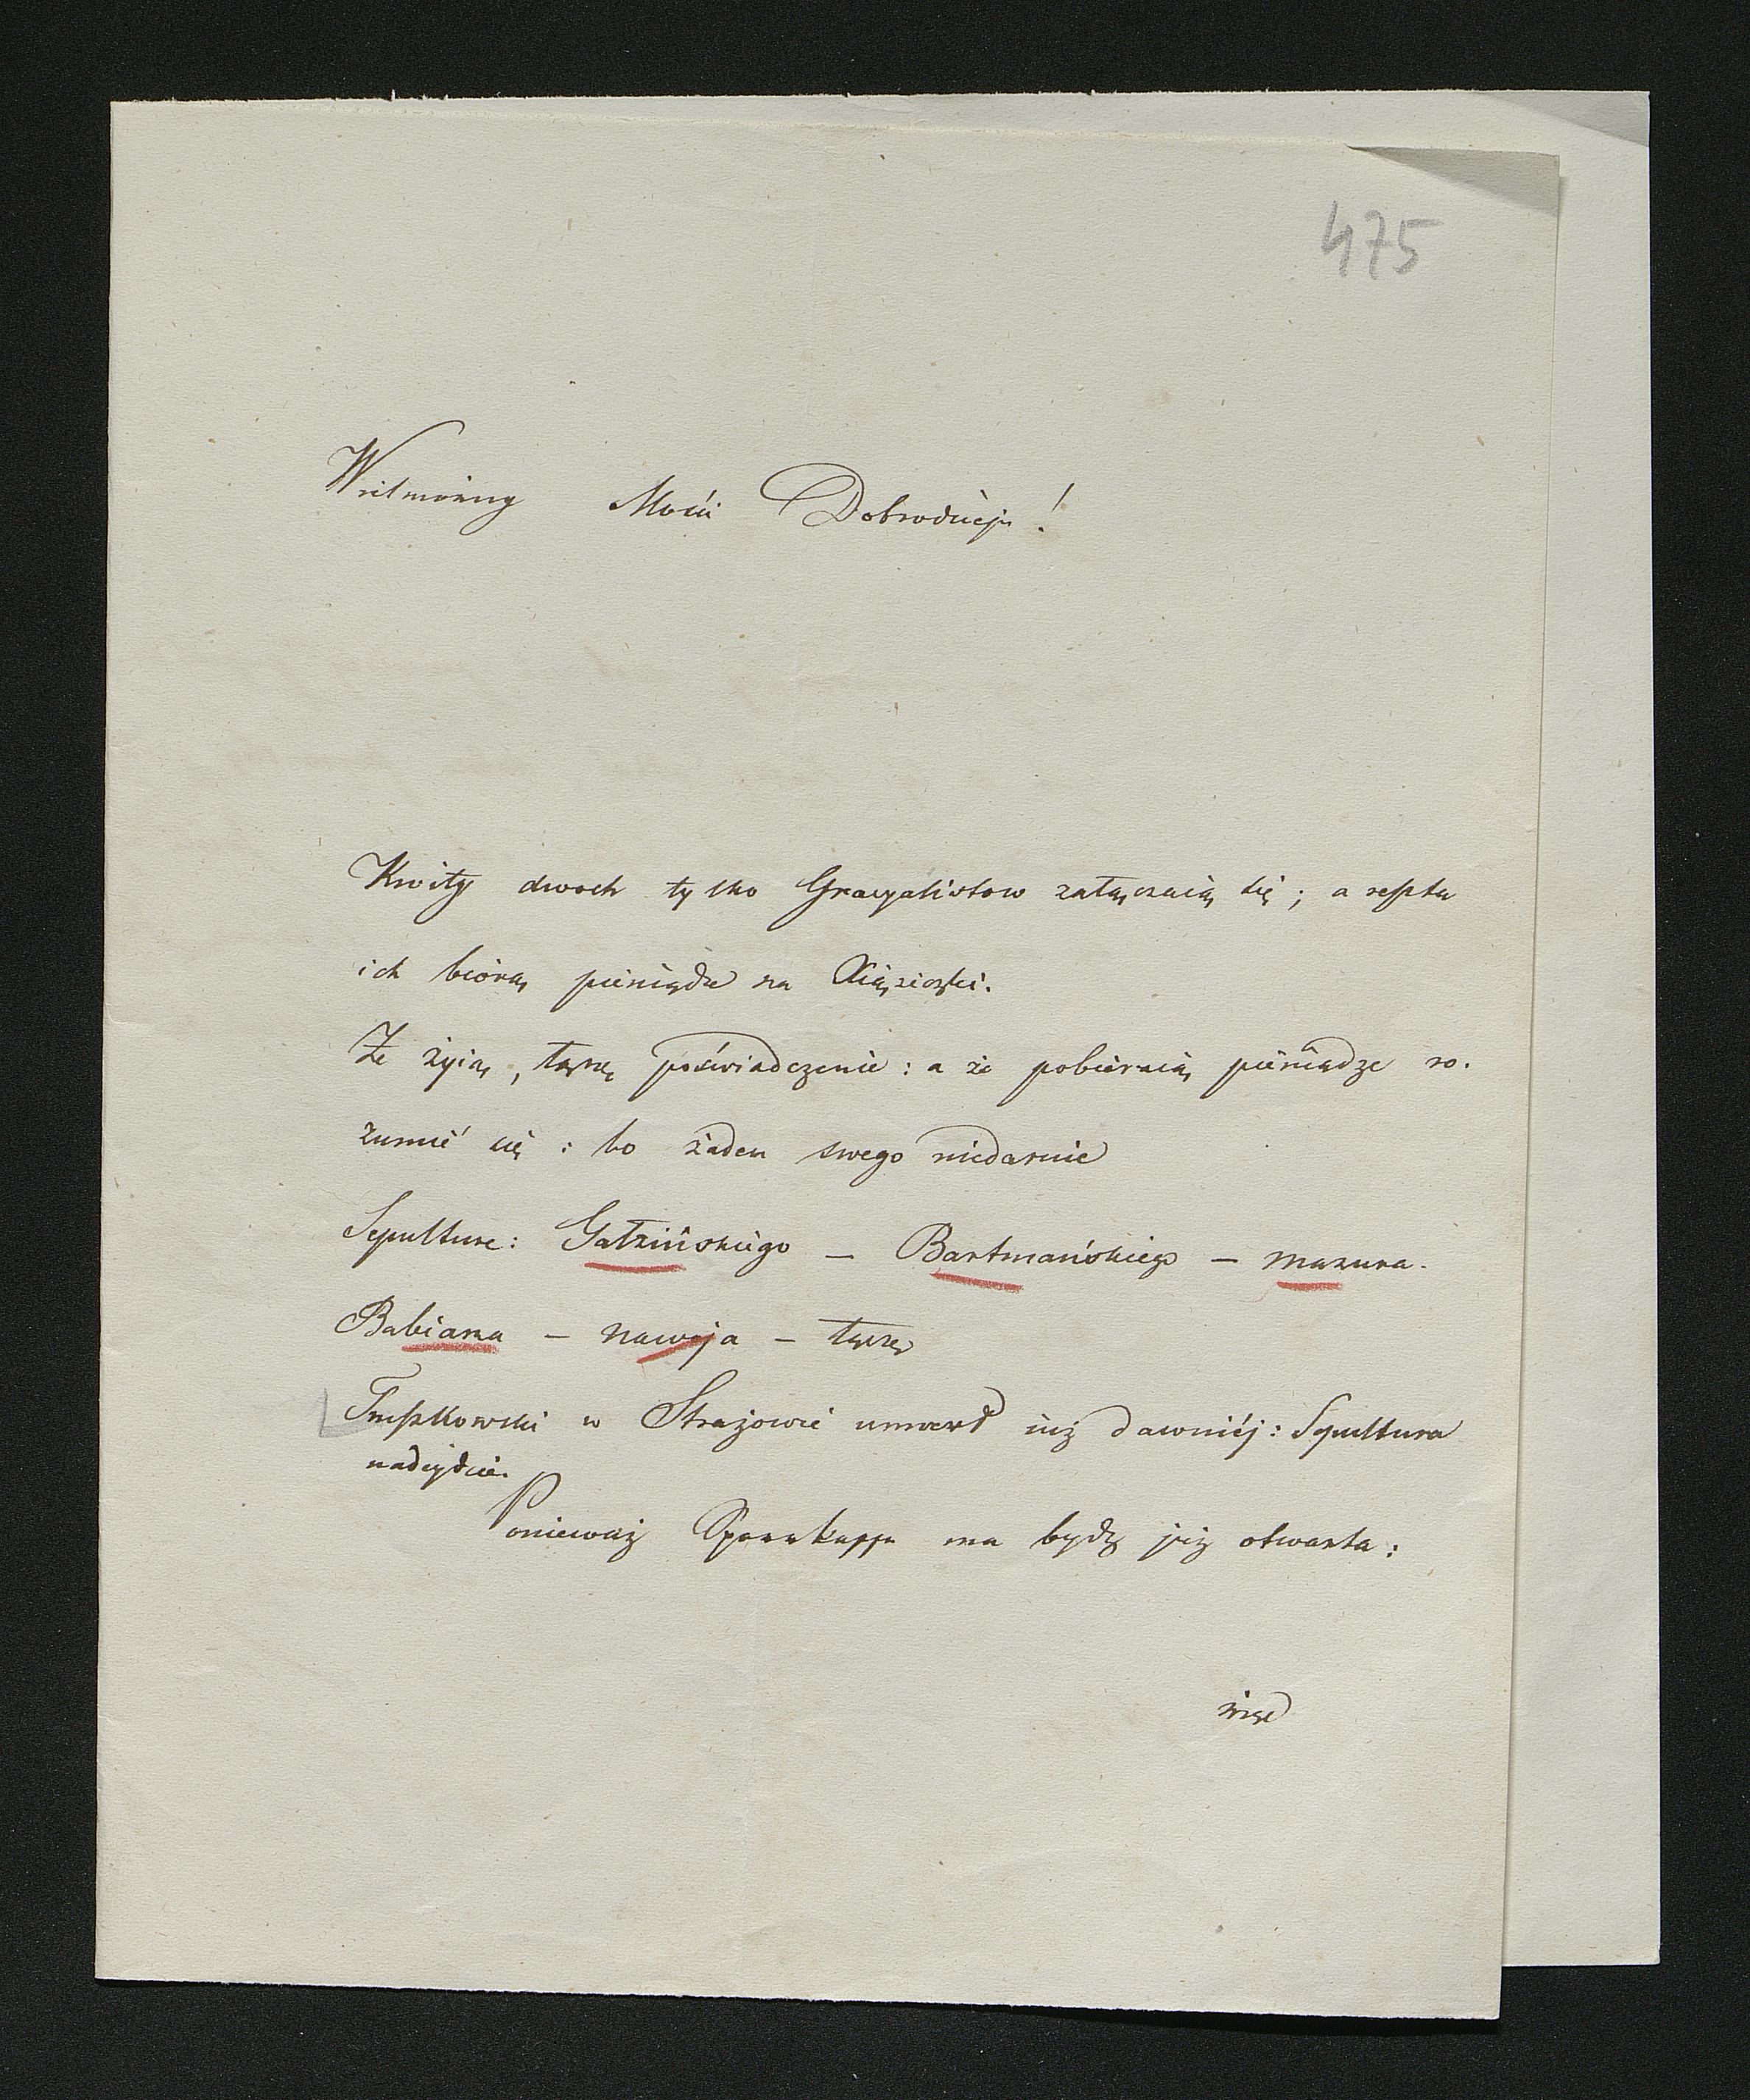 475
Wielmożny Mości Dobrodzieju!
Kwity dwoch tylko Gracyalistow załączaią się; a reszta
ich biorą pieniądze na Xiążeczki.
Że żyią, łączę poświadczenie: a że pobieraią pieniądze ro-
zumié się: bo żaden swego niedaruie
Sepulture: Gałzińskiego — Bartmańskiego — Mazura.
Babiarza — Nawoja — łączę
Truszkowski w Strażowie umarł iuż dawniéj: Sepultura
nadeydzie.
Ponieważ Sparrkassa ma bydź już otwarta:
więc